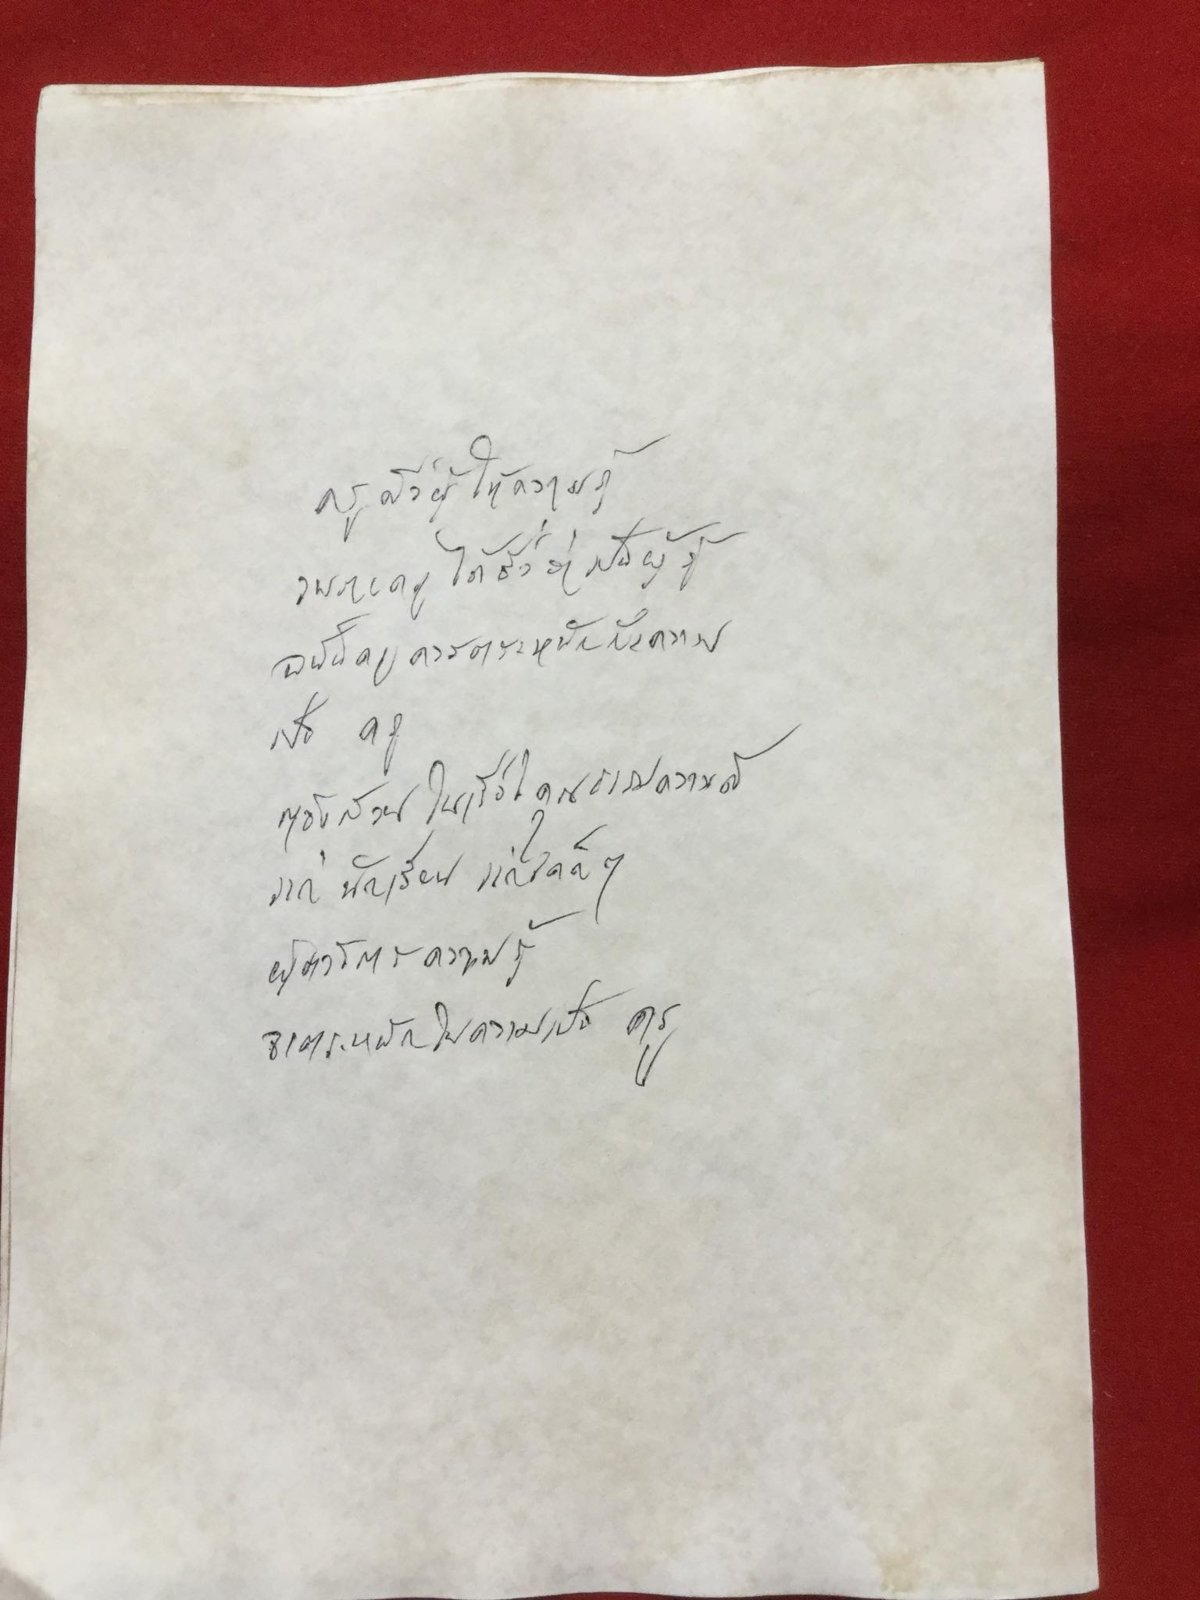 ครู คือผู้ให้ความรู้
เพราะครู ได้ชื่อว่าเป็นผู้รู้
ฉะนั้นครูควรตระหนักถึงความ
เป็น ครู
ต้องสอน ในเรื่องคุณธรรมความดี
แก่ นักเรียน แก่เด็กๆ
ความรู้
จะตระหนักในความเป็น ครู